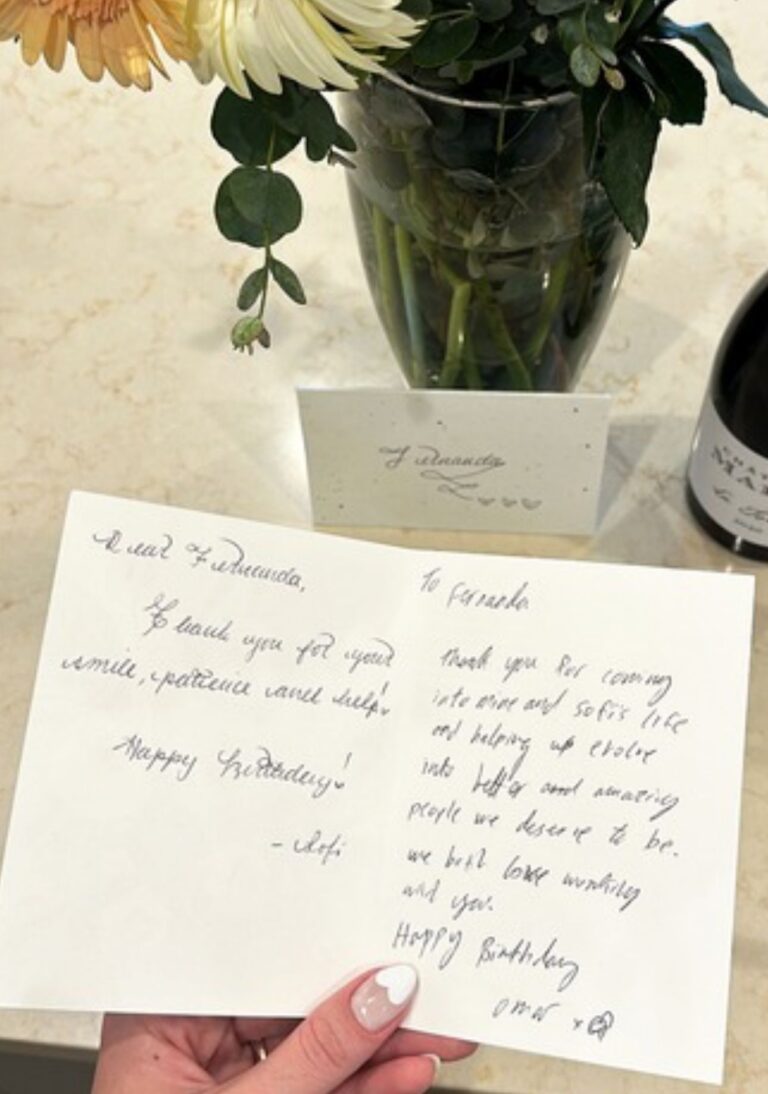 Fernanda
Dear Fernanda,
Thank you for your
smile, patience and help!
Happy Birthday!
- Sofi
To Fernanda
Thank you for coming
into mine and sofi's life
and helping us evolve
into better and amazing
people we deserve to be.
we both love working
with you.
Happy Birthday
omar x